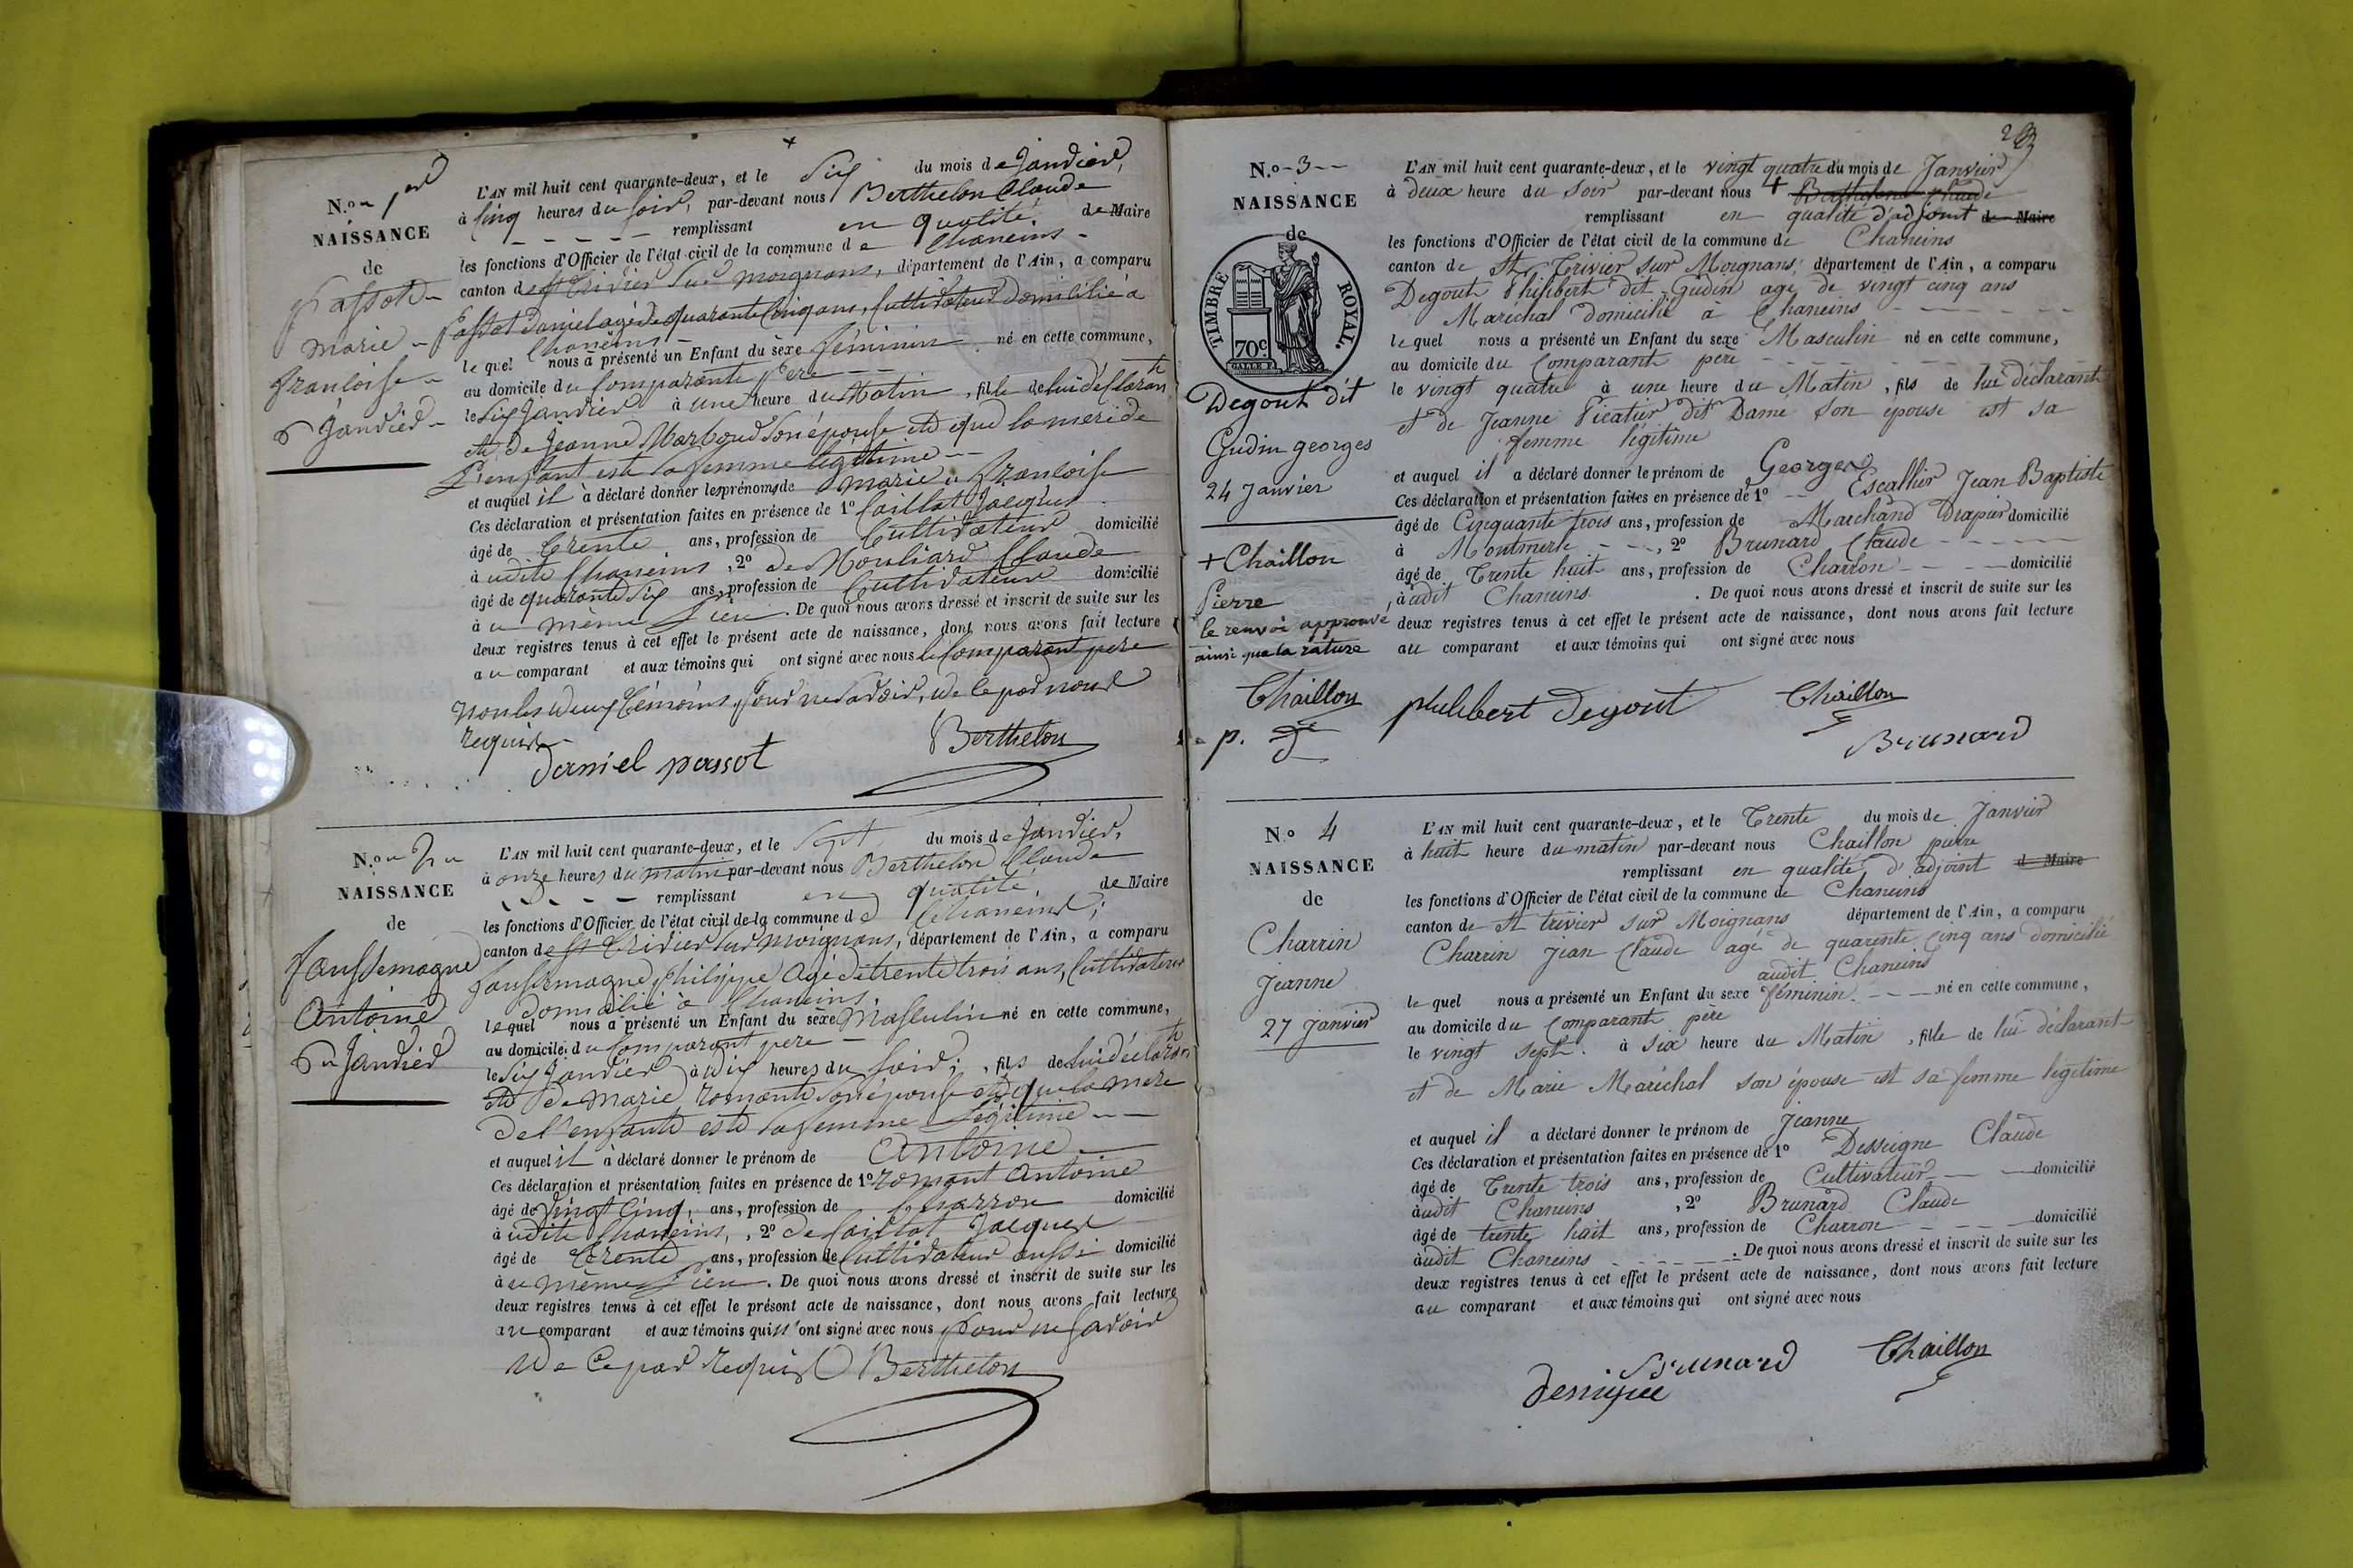 N.o 1er
NAISSANCE
de
passot
marie
françoise
6 janvier
L'AN mil huit cent quarante-deux, et le six du mois de janvier,
à cinq heures du soir, par-devant nous Berthelon Claude
remplissant en qualité de Maire
les fonctions d'Officier de l'état civil de la commune de Chaneins
canton de St trivier sur moignans, département de l'Ain, a comparu
passot daniel agé de quarante cinq ans, Cultivateur domicilié a
Chaneins
le quel nous a présenté un Enfant du sexe féminin né en cette commune,
au domicile du Comparant père
le six janvier à une heure du Matin, fille de lui déclarant
et de jeanne Marboud son épouse et que la mere de
L'enfant est sa femme légitime
et auquel il a déclaré donner les prénoms de marie françoise
Ces déclaration et présentation faites en présence de 1o Caillot Jacques
âgé de trente ans, profession de Cultivateur domicilié
à udit Chaneins, 2o de Mouliard Claude
âgé de quarante six ans, profession de Cultivateur domicilié
à u même Lieu. De quoi nous avons dressé et inscrit de suite sur les
deux registres tenus à cet effet le présent acte de naissance, dont nous avons fait lecture
au comparant et aux témoins qui ont signé avec nous le Comparant pere
non les deux témoins pour ne savoir, de ce par nous
requis
daniel passot Berthelon
N.o 2
NAISSANCE
de
faussemagne
Antoine
6 janvier
L'AN mil huit cent quarante-deux, et le sept du mois de janvier,
à onze heures du matin par-devant nous Berthelon Claude
remplissant en qualité de Maire
les fonctions d'Officier de l'état civil de la commune de Chaneins;
canton de St trivier sur moignans, département de l'Ain, a comparu
faussemagne philippe agé de trente trois ans, Cultivateur
domicilié à Chaneins.
lequel nous a présenté un Enfant du sexe Masculin né en cette commune,
au domicile du Comparant pere
le six janvier à dix heures du soir; , fils de lui déclarant
et de marie romant son épouse et que la mere
de l'enfant est sa femme Légitime
et auquel il a déclaré donner le prénom de Antoine
Ces déclaration et présentation faites en présence de 1o romant Antoine
âgé de vingt cinq, ans, profession de Charron domicilié
à udit Chaneins, , 2o de Caillot Jacques
âgé de trente ans, profession de Cultivateur aussi domicilié
à u même Lieu. De quoi nous avons dressé et inscrit de suite sur les
deux registres tenus à cet effet le présent acte de naissance, dont nous avons fait lecture
au comparant et aux témoins qui n'ont signé avec nous pour ne savoir
de ce par requis Berthelon
N.o 3
NAISSANCE
de
TIMBRE ROYAL.
70c
Degout dit
Gudin georges
24 Janvier
+ Chaillon
Pierre
le renvoi approuvé
ainsi que la rature
Chaillon
L'AN mil huit cent quarante-deux, et le vingt quatre du mois de Janvier
à deux heure du soir par-devant nous + Berthelon Claude
remplissant en qualité d'adjoint de Maire
les fonctions d'Officier de l'état civil de la commune de Chaneins
canton de St Trivier sur Moignans; département de l'Ain, a comparu
Degout Philibert dit Gudin agé de vingt cinq ans
Maréchal domicilié à Chaneins
le quel nous a présenté un Enfant du sexe Masculin né en cette commune,
au domicile du Comparant père
le vingt quatre à une heure du Matin, fils de lui déclarant
et de Jeanne Picatier dit Dame son épouse est sa
femme légitime
et auquel il a déclaré donner le prénom de Georges
Ces déclaration et présentation faites en présence de 1o Escallier Jean Baptiste
âgé de Cinquante trois ans, profession de Marchand Drapier domicilié
à Montmerle , 2o Brunard Claude
âgé de Trente huit ans, profession de Charron domicilié
àudit Chaneins. De quoi nous avons dressé et inscrit de suite sur les
deux registres tenus à cet effet le présent acte de naissance, dont nous avons fait lecture
au comparant et aux témoins qui ont signé avec nous
philibert degout Chaillon
Brunard
N.o 4
NAISSANCE
de
Charrin
Jeanne
27 Janvier
L'AN mil huit cent quarante-deux, et le Trente du mois de Janvier
à huit heure du matin par-devant nous Chaillon pierre
remplissant en qualité d'adjoint de Maire
les fonctions d'Officier de l'état civil de la commune de Chaneins
canton de St trivier sur Moignans département de l'Ain, a comparu
Charrin Jean Claude agé de quarente cinq ans domicilié
audit Chaneins
le quel nous a présenté un Enfant du sexe féminin né en cette commune,
au domicile du Comparant père
le vingt sept à six heure du Matin, fille de lui déclarant
et de Marie Maréchal son épouse est sa femme légitime
et auquel il a déclaré donner le prénom de Jeanne
Ces déclaration et présentation faites en présence de 1o Desseigne Claude
âgé de Trente trois ans, profession de Cultivateur domicilié
àudit Chaneins , 2o Brunard Claude
âgé de trente huit ans, profession de Charron domicilié
àudit Chaneins. De quoi nous avons dressé et inscrit de suite sur les
deux registres tenus à cet effet le présent acte de naissance, dont nous avons fait lecture
au comparant et aux témoins qui ont signé avec nous
Brunard Chaillon